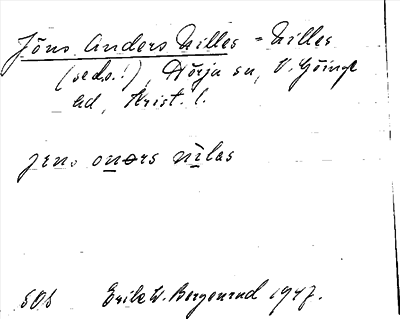 Jöns Anders Nilles = Nilles
(seds.!), Nörja sn, V. Göinge
hd, Krist. l.
jen. onərs nilas
SOS Erik W. Bergenrud 1947.